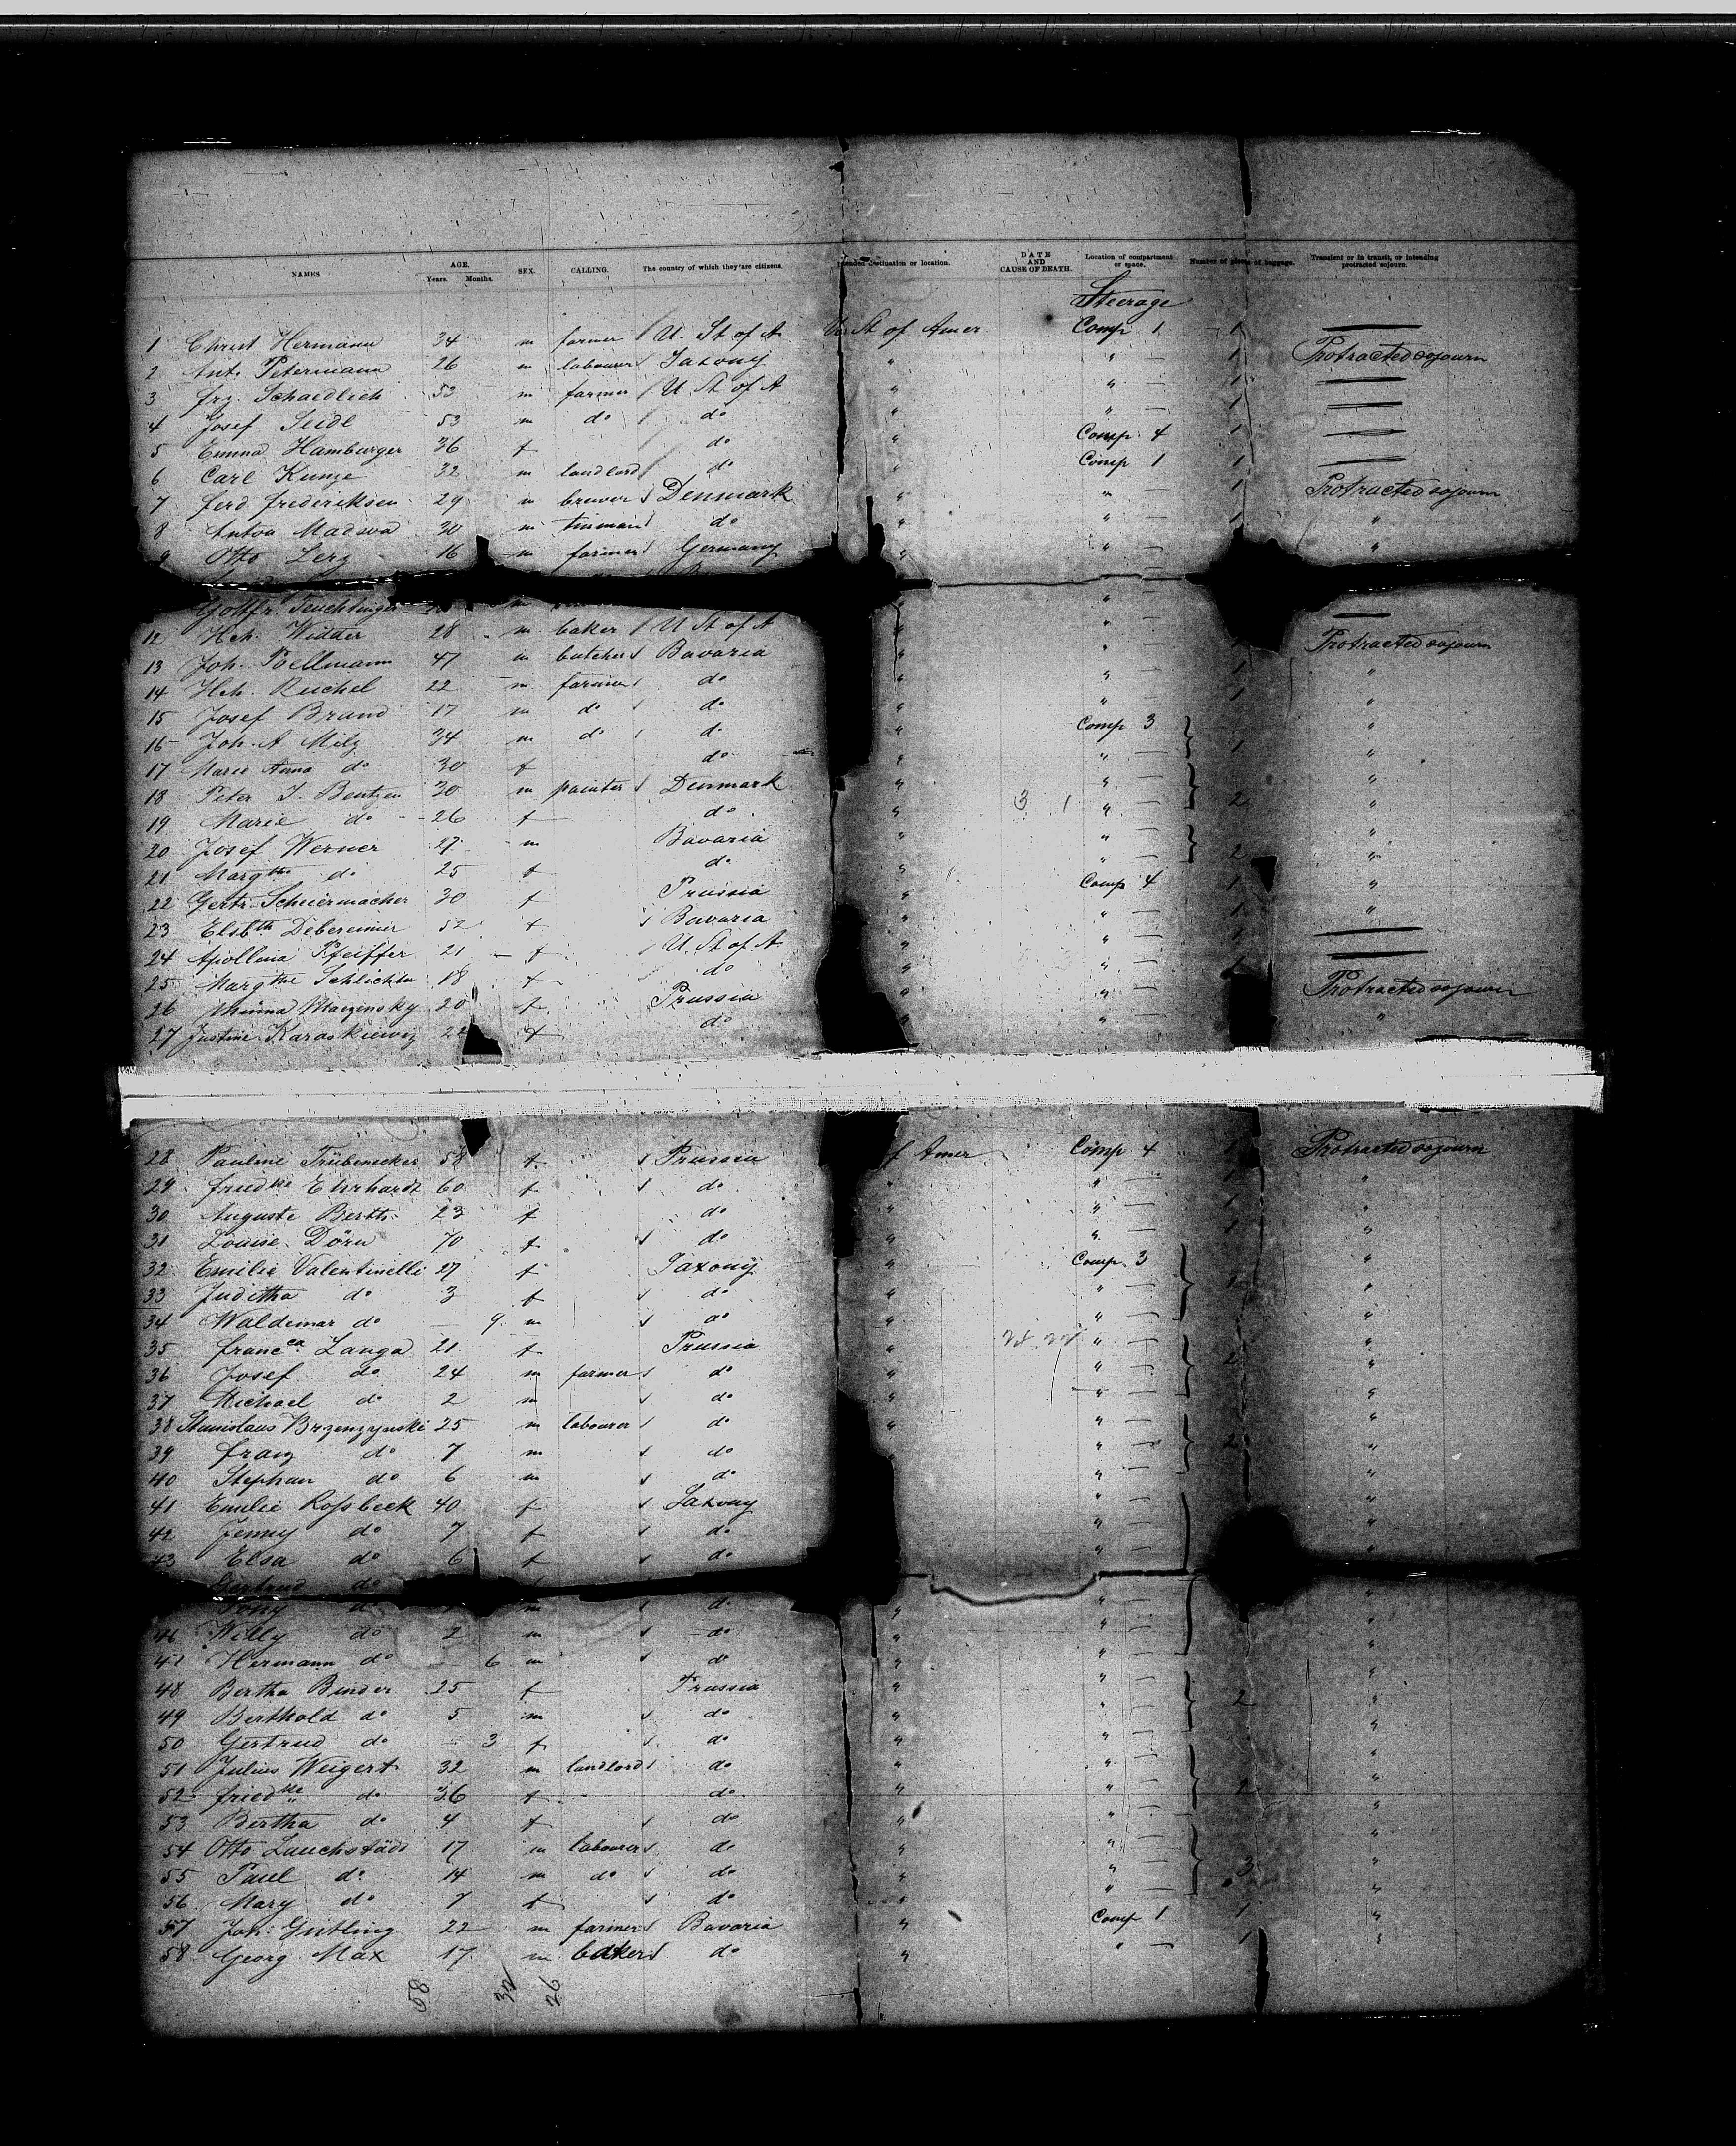 NAMES AGE. Years. Months. SEX. CALLING. The country of which they are citizens. Intended destination or location. DATE AND CAUSE OF DEATH. Location of compartment or space. Number of pieces of baggage. Transient or in transit, or intending protracted sojourn.
Steerage
1 Christ Hermann 34 m farmer U. St of A U. St of Amer Comp 1 1 —
2 Ant. Petermann 26 m labourer Saxony " " — 1 Protracted sojourn
3 Frz. Schaedlich 53 m farmer U St of A " " — 1 —
4 Josef Seidl 53 m do do " " — 1 —
5 Emma Hamburger 36 f do " Comp 4 1 —
6 Carl Kunze 32 m landlord do " Comp 1 1 —
7 Ferd. Frederiksen 29 m brewer Denmark " " — 1 Protracted sojourn
8 Anton Madson 30 m tinman do " " — 1 "
9 Otto Lerz 16 m farmer Germany " " "
Gottfr. Teuchtinger m " "
12 Hch. Widder 28 m baker U St of A " " — —
13 Joh. Poellmann 47 m butcher Bavaria " " — 1 Protracted sojourn
14 Hch. Reichel 22 m farmer do " " — 1 "
15 Josef Brand 17 m do do " " — 1 "
16 Joh. A Milz 34 m do do " Comp 3 "
17 Marie Anna do 30 f do " " — 1 "
18 Peter J. Bentzen 30 m painter Denmark " " — "
19 Marie do 26 f do " 3 1 " — 2 "
20 Josef Werner 27 m Bavaria " " — "
21 Margthe do 25 f do " " — 2 "
22 Gertr. Scheiermacher 30 f Prussia " Comp 4 1 "
23 Elsbth Debereiner 52 f Bavaria " " — 1 "
24 Apollina Pfeiffer 21 f U. St of A " " — 1 —
25 Margthe Schlichter 18 f do " " — 1 —
26 Minna Maczinsky 20 f Prussia " " — Protracted sojourn
27 Justine Karaskiewicz 22 f do " " — "
28 Pauline Trübenecker 58 f Prussia f Amer Comp 4 1 Protracted sojourn
29 Friedke Ehrhardt 60 f do " " — 1 "
30 Auguste Berth 23 f do " " — 1 "
31 Louise Dörn 70 f do " " — 1 "
32 Emilie Valentinelli 27 f Saxony " Comp. 3 "
33 Juditha do 3 f do " " — 1 "
34 Waldemar do — 9 m do " " — "
35 Francca Langa 21 f Prussia " " — "
36 Josef do 24 m farmer do " " — 2 "
37 Michael do 2 m do " " — "
38 Stanislaus Brzenzynski 25 m labourer do " " — "
39 Franz do 7 m do " — 2 "
40 Stephan do 6 m do " — "
41 Emilie Rossbeck 40 f Saxony " — "
42 Jenny do 7 f do " — "
43 Elsa do 6 f do " — "
Gertrud do
Tony do m do " " — "
46 Willy do 2 m do " " — "
47 Hermann do 6 m do " " — "
48 Bertha Binder 25 f Prussia " " — "
49 Berthold do 5 m do " " — 2 "
50 Gertrud do — 3 f do " " — "
51 Julius Weigert 32 m landlord do " " — "
52 Friedke do 36 f do " " — 2 "
53 Bertha do 4 f do " " — "
54 Otto Lauchstädt 17 m labourer do " " — "
55 Paul do 14 m do do " " — 3 "
56 Mary do 7 f do " " — "
57 Joh. Gütling 22 m farmer Bavaria " Comp 1 1 "
58 Georg Max 17 m baker do " " — 1 "
58 32 26